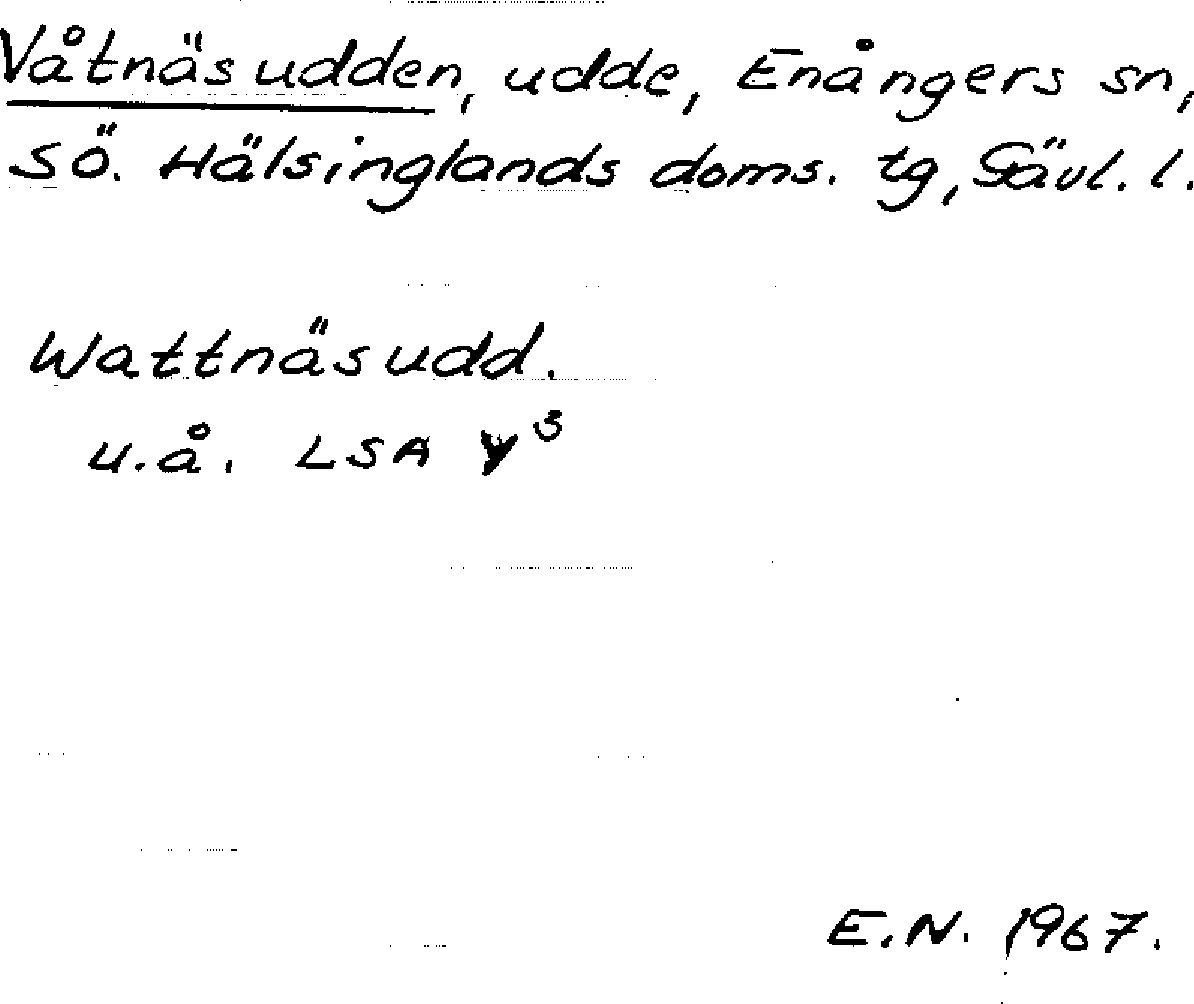 Våtnäsudden, udde, Enångers sn,
SÖ. Hälsinglands doms. tg, Gävl. l.
Wattnäsudd.
u.å. LSA Y³
E.N. 1967.